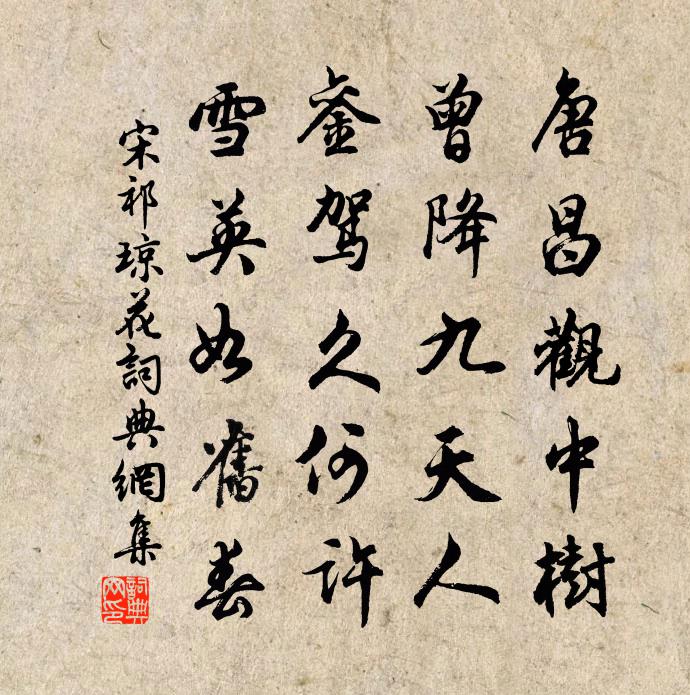 唐昌觀中樹
曾降九天人
鸞駕久何許
雪英如舊春
宋祁瓊花詞典網集
詞典網印